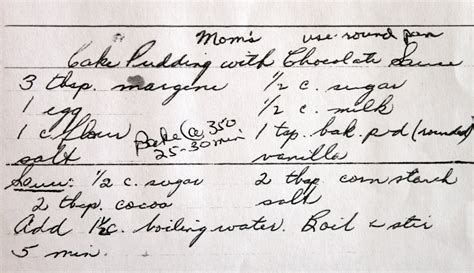 Mom's use-round pan
Cake Pudding with Chocolate Sauce
3 tbsp. margerine 1/2 c. sugar
1 egg 1/2 c. milk
1 c. flour Bake @ 350 1 tsp. bak. pd (rounded)
salt 25-30 min vanilla
Sauce: 1/2 c. sugar 2 tbsp corn starch
2 tbsp. cocoa salt
Add 1 1/2 c. boiling water. Boil & stir
5 min.